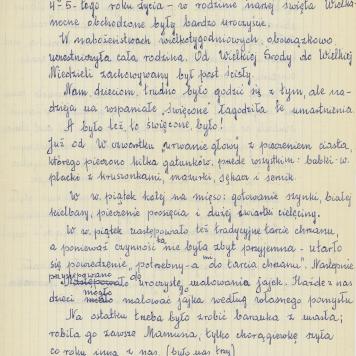 4-5-tego roku życia – w rodzinie naszej święta Wielka-
nocne obchodzone były bardzo uroczyście.
W nabożeństwach wielkotygodniowych, obowiązkowo
uczestniczyła cała rodzina. Od Wielkiej Środy do Wielkiej
Niedzieli zachowywany był post ścisły.
Nam dzieciom, trudno było godzić się z tym, ale na-
dzieja na wspaniałe „święcone" łagodziła te umartwienia.
A było też to święcone, było!
Już od W. czwartku „urwanie głowy" z pieczeniem ciasta,
którego pieczono kilka gatunków, przede wszystkim: babki w.
placki z kruszonkami, mazurki, sękacz i sernik.
W w. piątek kolej na mięso: gotowanie szynki, białej
kiełbasy, pieczenie prosięcia i dużej ćwiartki cielęciny.
W w. piątek następowało też tradycyjne tarcie chrzanu,
a ponieważ czynność ta nie była zbyt przyjemna – utarło
się powiedzenie „potrzebny-a mi do tarcia chrzanu". Następnie
przystępowano do
Następowało uroczyste malowania jajek. Każde z nas
dzieci mogło malować jajka według własnego pomysłu
Na ostatku trzeba było zrobić baranka z masła;
robiła go zawsze Mamusia, tylko chorągiewkę szyła
co roku inna z nas (było nas trzy)